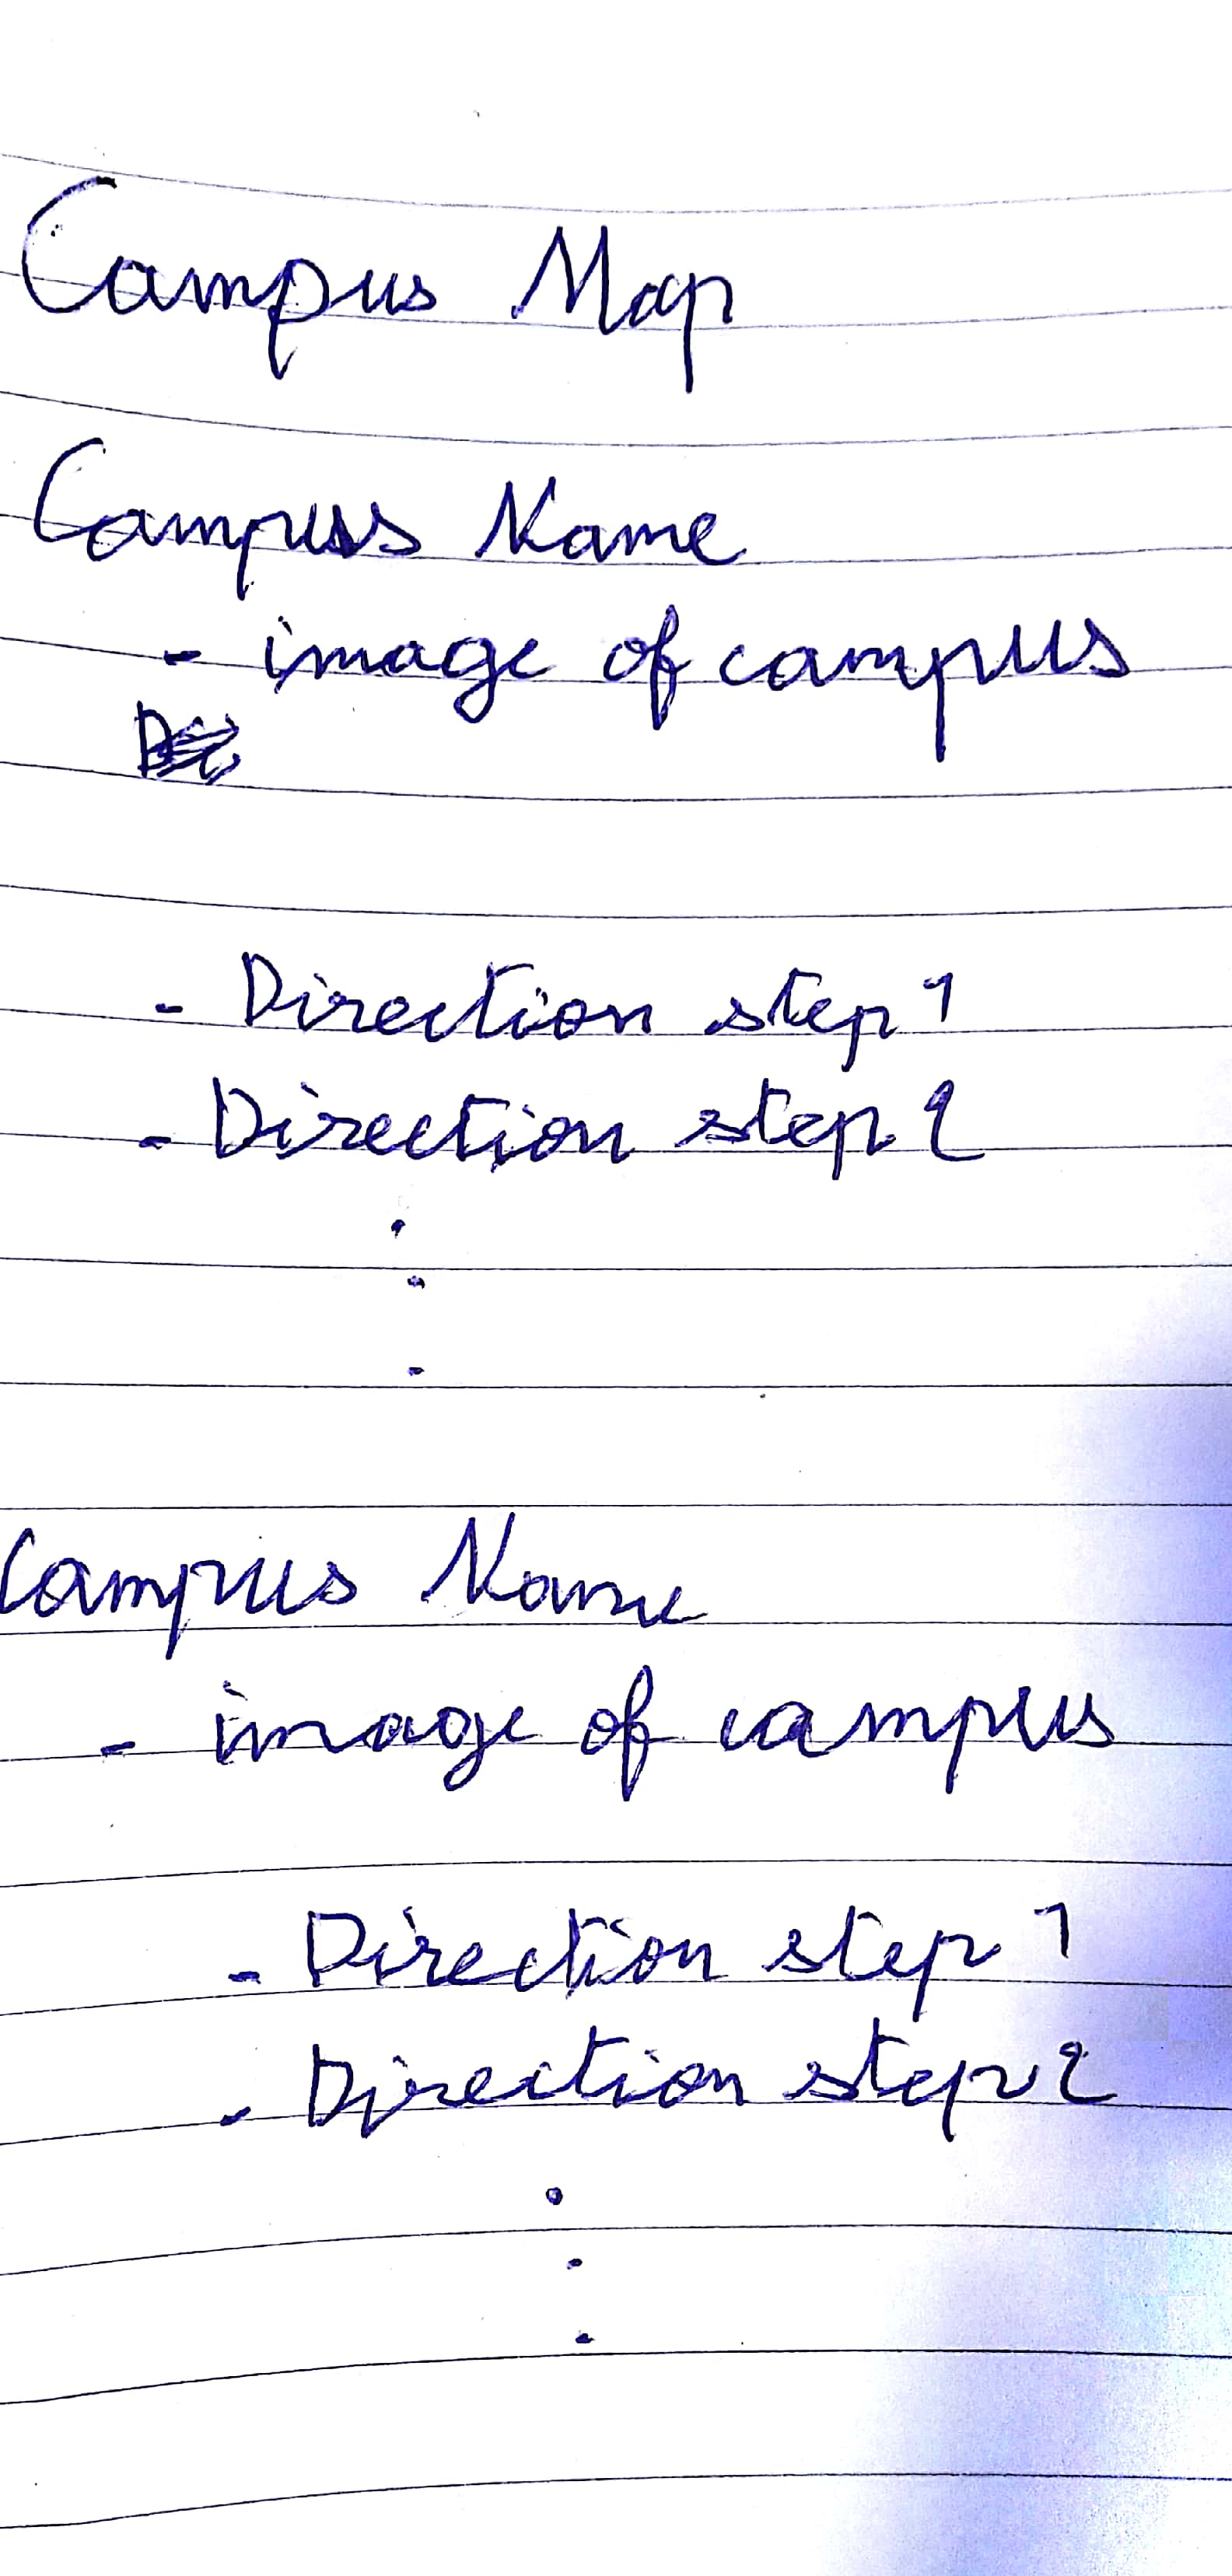 Campus Map
Campus Name
- image of campus
- Direction step 1
- Direction step 2
.
.
.
Campus Name
- image of campus
- Direction step 1
- Direction step 2
.
.
.